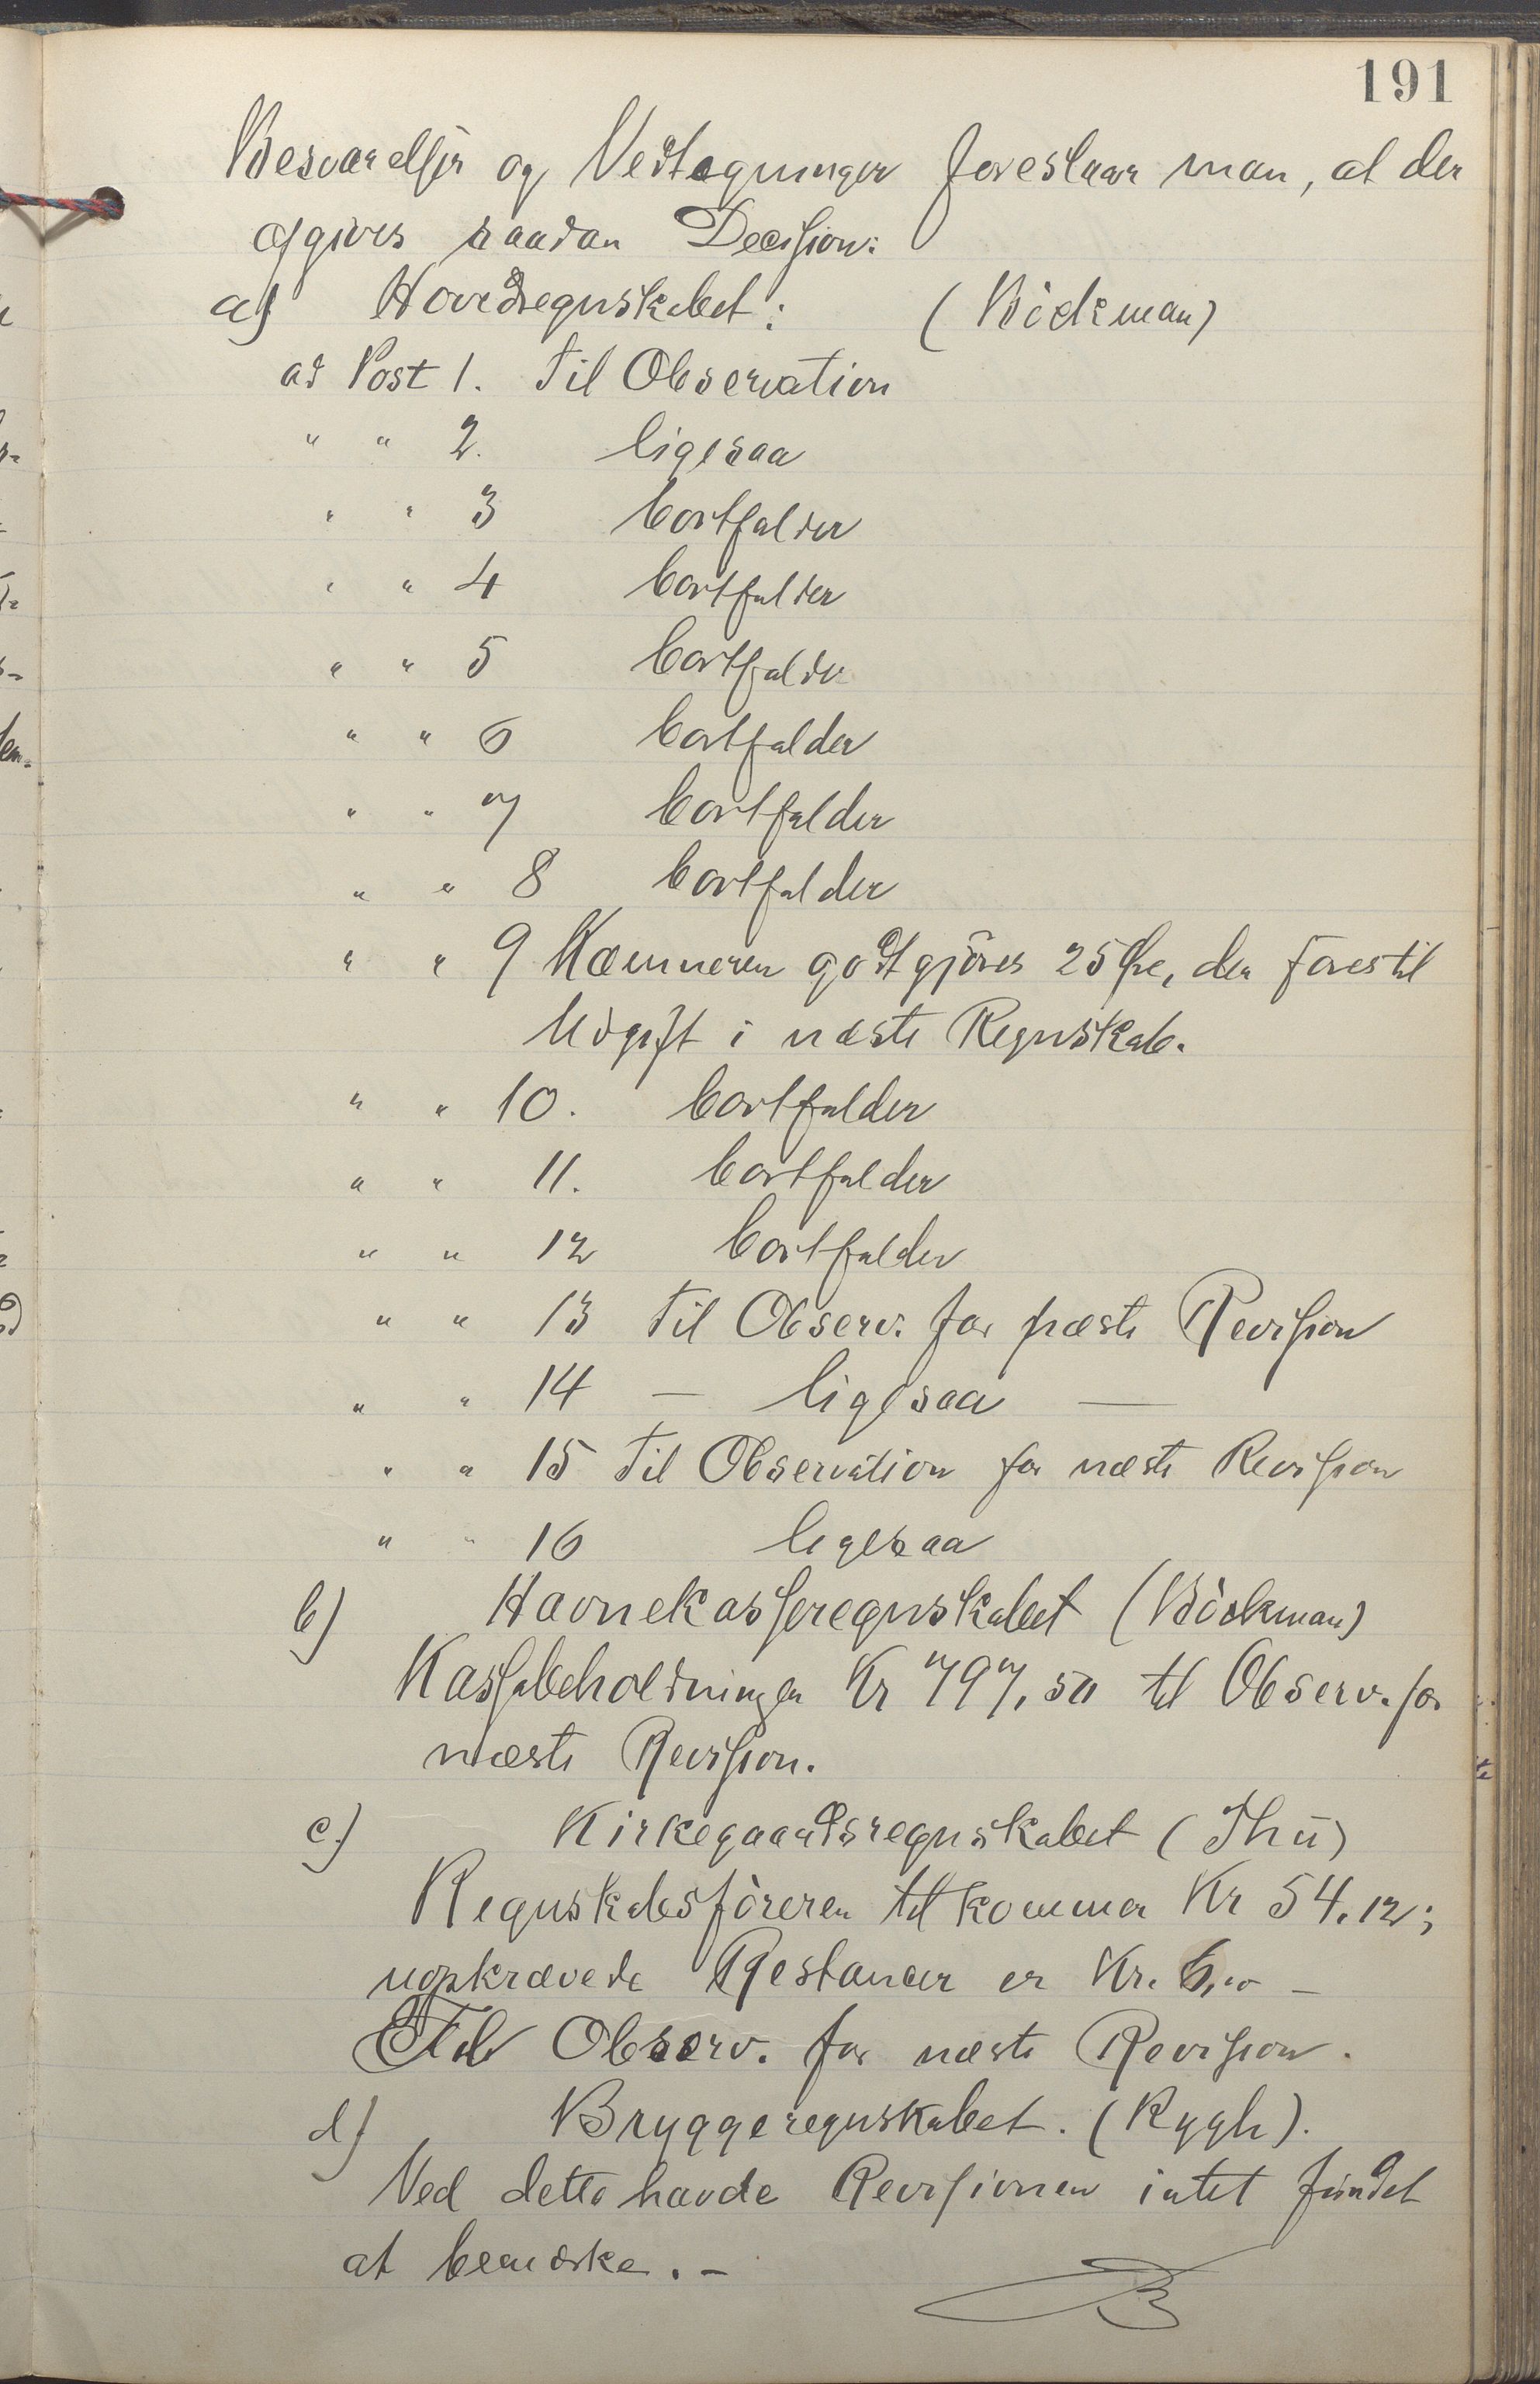 191
Besvarelser og Vedtegninger foreslaar man, at der
afgives saadan Decision:
a) Hovedregnskabet: (Böckman)
ad Post 1. Til Observation
" " 2. ligesaa
" " 3 bortfalder
" " 4 bortfalder
" " 5 bortfalder
" " 6 bortfalder
" " 7 bortfalder
" " 8 bortfalder
" " 9 Kæmneren godtgjöres 25 Øre, der föres til
Udgift i næste Regnskab.
" " 10. bortfalder
" " 11. bortfalder
" " 12 bortfalder
" " 13 Til Observ. for næste Revision
" " 14 — ligesaa —
" " 15 Til Observation for næste Revision
" " 16 ligesaa
b) Havnekasseregnskabet (Böckman)
Kassabeholdningen Kr 797,50 til Observ. for
næste Revision.
c) Kirkegaardsregnskabet (Thii)
Regnskabsföreren tilkommer Kr 54.12;
uopkrævede Restancer er Kr. 6,00 –
Til Observ. for næste Revision.
d) Bryggeregnskabet. (Rygh).
Ved dette havde Revisionen intet fundet
at bemærke. –